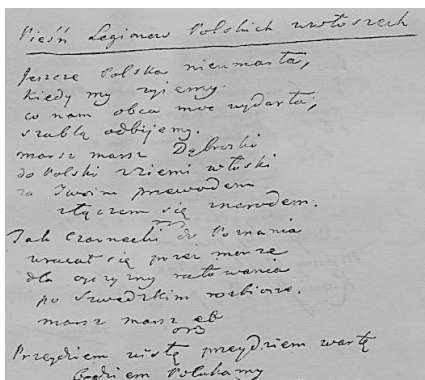 Pieśń Legionów Polskich wewłoszech
Jeszcze Polska nieumarła,
kiedy my żyiemy
co nam obca moc wydarła,
szablą odbijemy.
marsz marsz Dąbroski
do Polski zziemi włoski
za Twoim przewodem
złączem się znarodem.
Jak Czarnecki do Poznania
wracał się przez morze
dla oyczyzny ratowania
po Szwedzkim rozbiorze.
marsz marsz
Przeydziem wisłę przeydziem wartę
będziem Polakamy